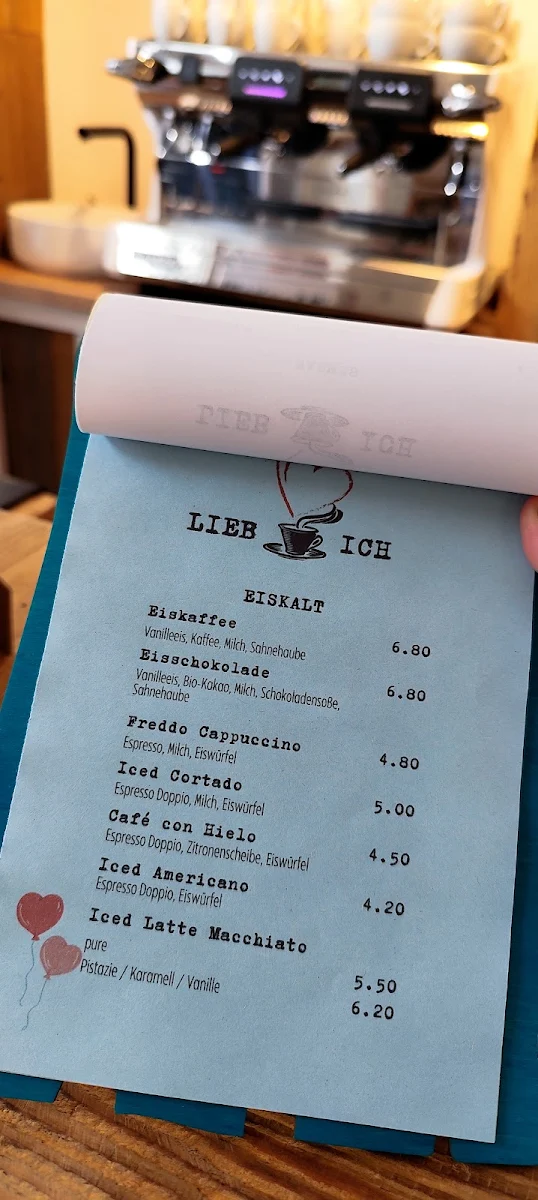 LIEB ICH
LIEB ICH
EISKALT
Eiskaffee
Vanilleeis, Kaffee, Milch, Sahnehaube 6.80
Eisschokolade
Vanilleeis, Bio-Kakao, Milch, Schokoladensoße, 6.80
Sahnehaube
Freddo Cappuccino
Espresso, Milch, Eiswürfel 4.80
Iced Cortado
Espresso Doppio, Milch, Eiswürfel 5.00
Café con Hielo
Espresso Doppio, Zitronenscheibe, Eiswürfel 4.50
Iced Americano
Espresso Doppio, Eiswürfel 4.20
Iced Latte Macchiato
pure 5.50
Pistazie / Karamell / Vanille 6.20